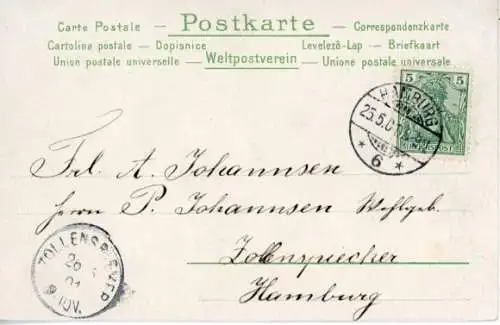 Carte Postale – Postkarte – Correspondenzkarte
Cartolina postale – Dopisnice Levelezō-Lap – Briefkaart
Union postale universelle – Weltpostverein – Unione postale universale
5 5
HAMBURG
25.5.0
* 6 *
Frl. A. Johannsen
Herrn P. Johannsen Wohlgeb.
Zollenspiecher
Hamburg
TOLLENSPIEKER
26
01